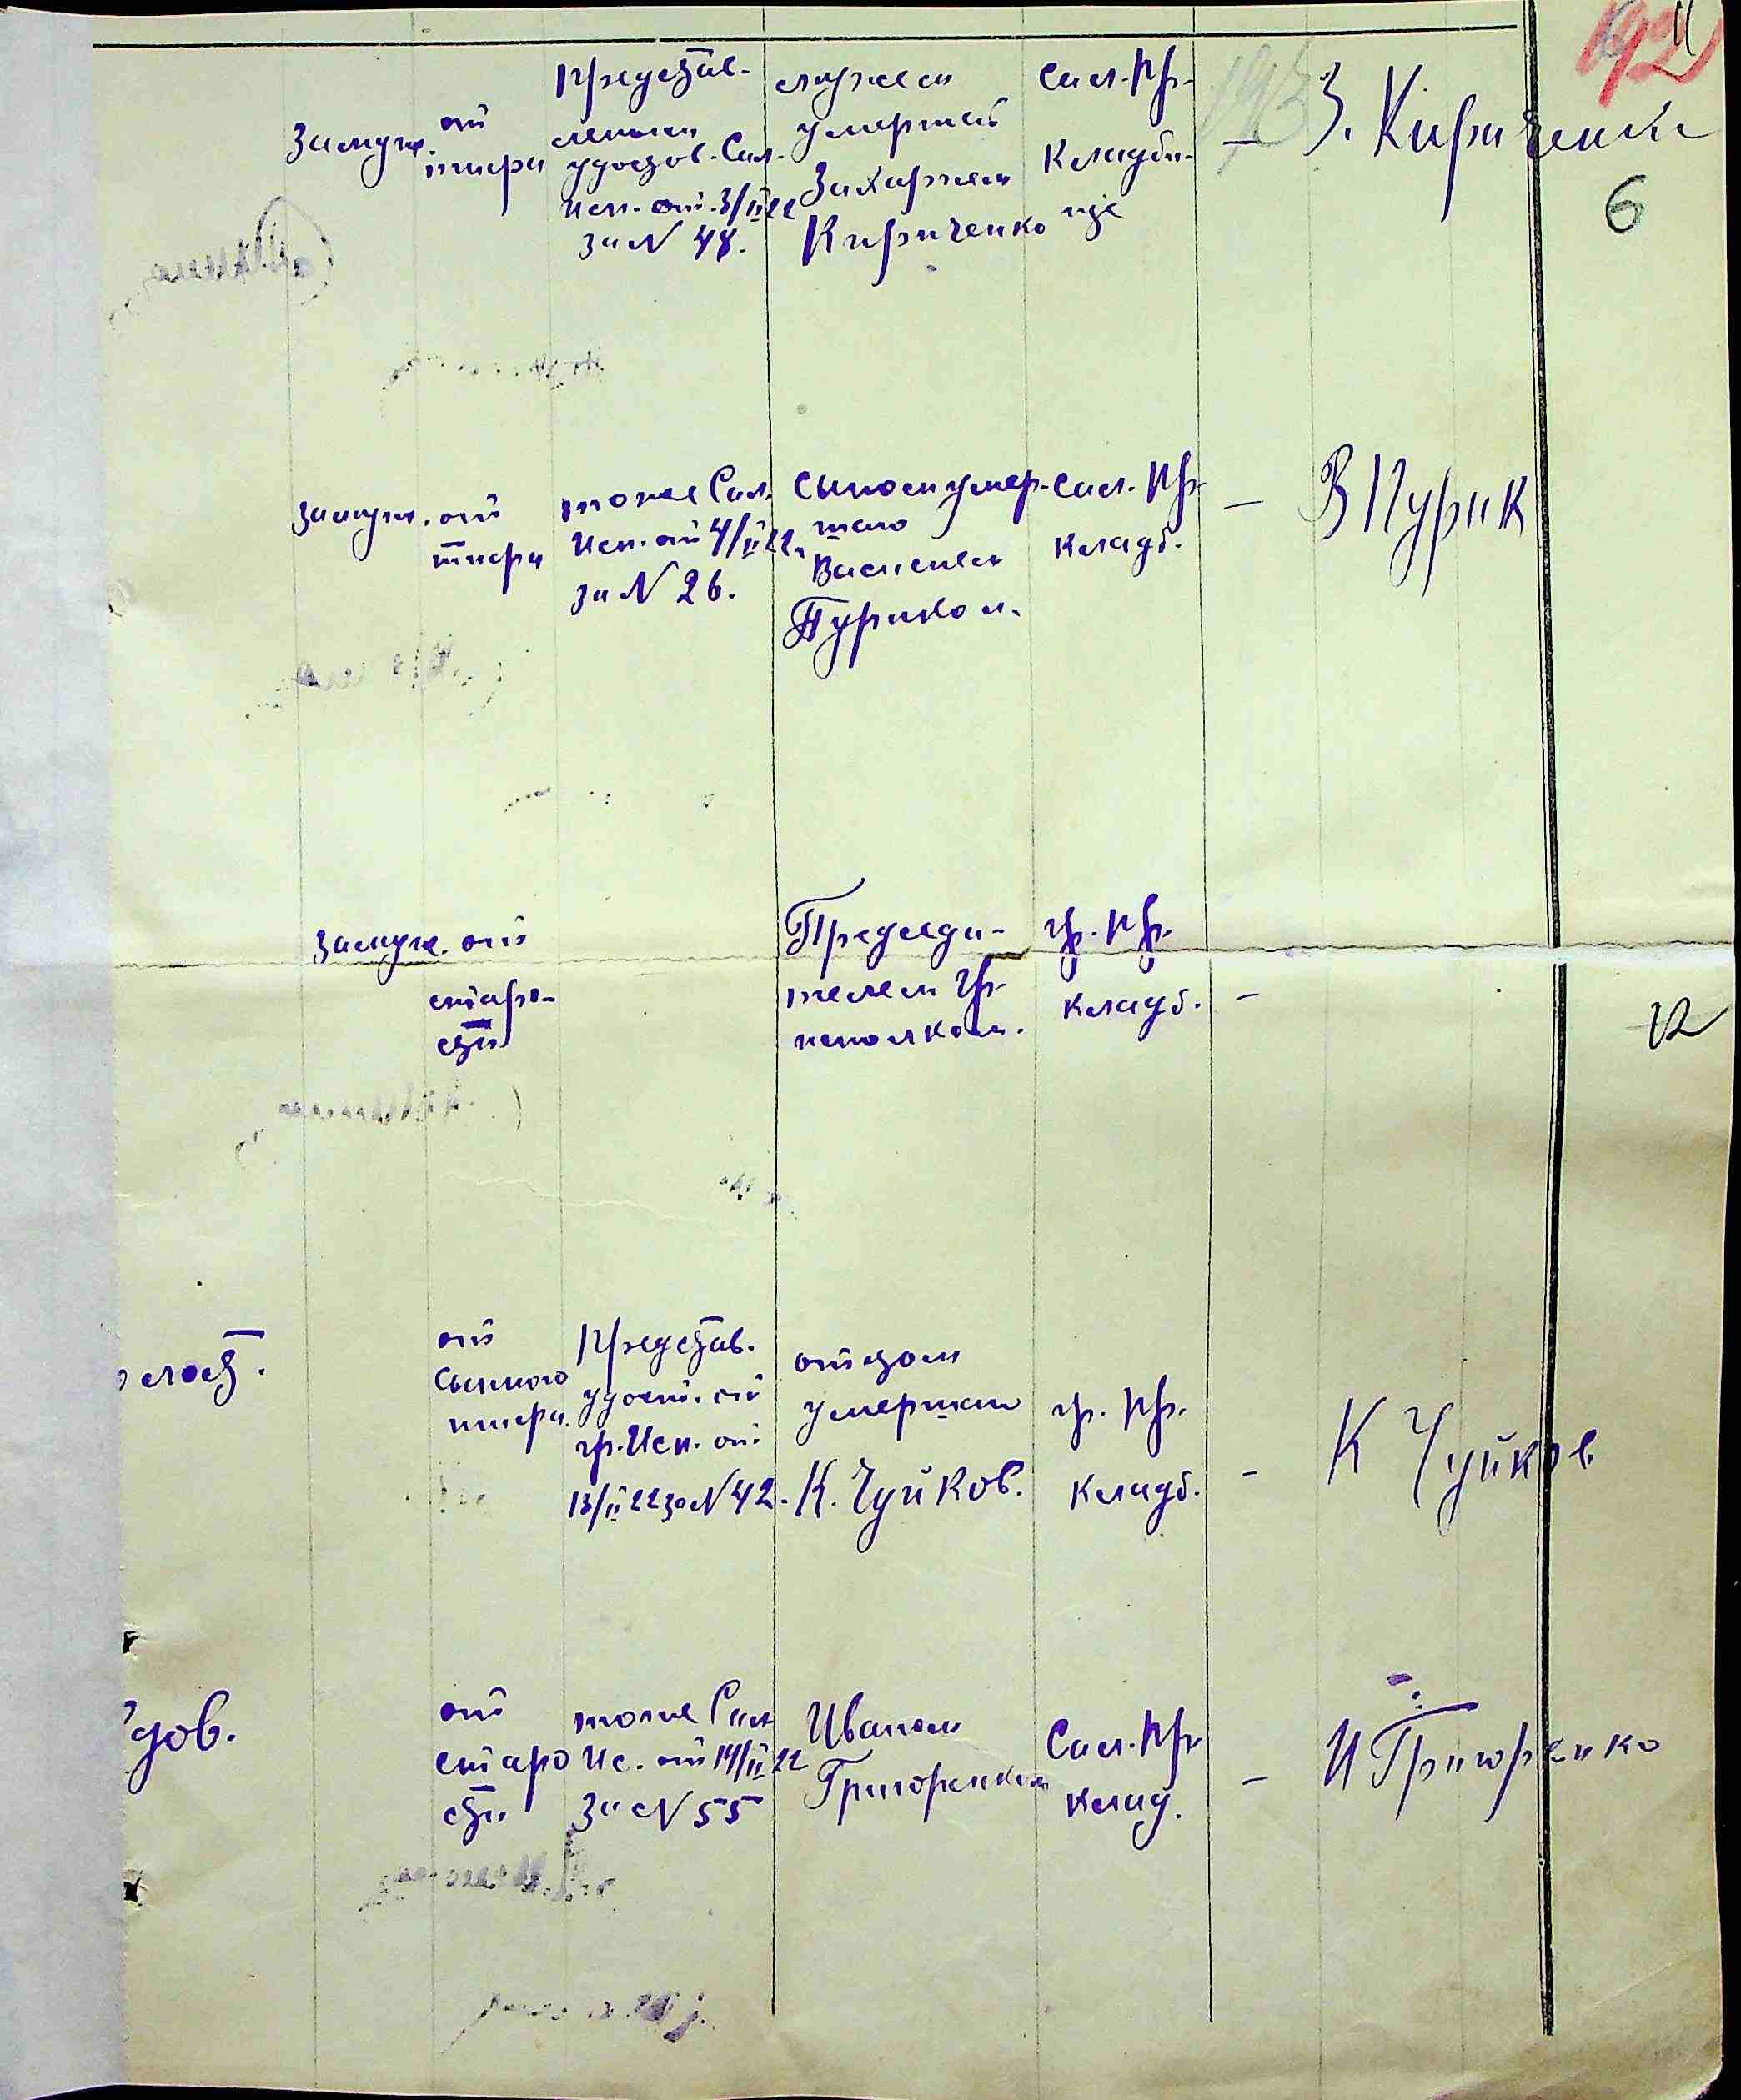 192
11
193
Замуж.
от
тифа
Представ-
лении
удостов. Сал.
Исп. от 3/II 22
за № 48.
мужем
умершей
Захарием
Кириченко
Сал. Пр.
Кладби-
ще
—
З. Кириченко
6
Замуж.
от
тифа
тоже Сал.
Исп. от 4/II 22.
за № 26.
сыном умер-
шего
Василием
Пуриком.
Сал. Пр.
кладб.
—
В Пурик
Замуж.
от
старо-
сти
Председа-
телем Гр.
исполком.
Гр. Пр.
кладб.
—
12
лост.
от
сыпного
тифа.
Представ.
удост. от
гр. Исп. от
13/II 22 за № 42.
отцом
умершаго
К. Чуйков.
гр. Пр.
кладб.
-
К Чуйков
дов.
от
старо
сти
тоже Сал
Ис. от 14/II 22
за № 55
Иваном
Григоренком
Сал. Пр.
клад.
-
И Григоренко